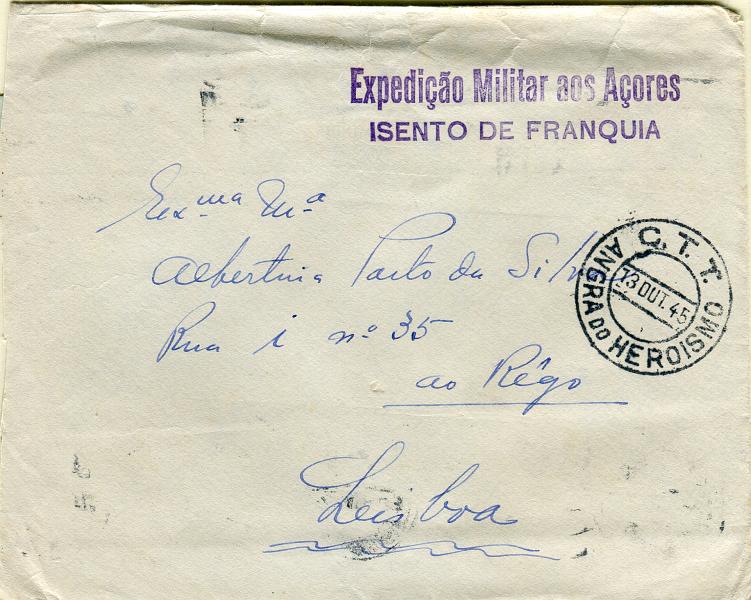 Expedição Militar aos Açores
ISENTO DE FRANQUIA
Exma Ma
Albertina Porto da Silva
Rua i nº 35
ao Rêgo
Lisboa
C.T.T.
ANGRA DO HEROISMO
13 OUT. 45